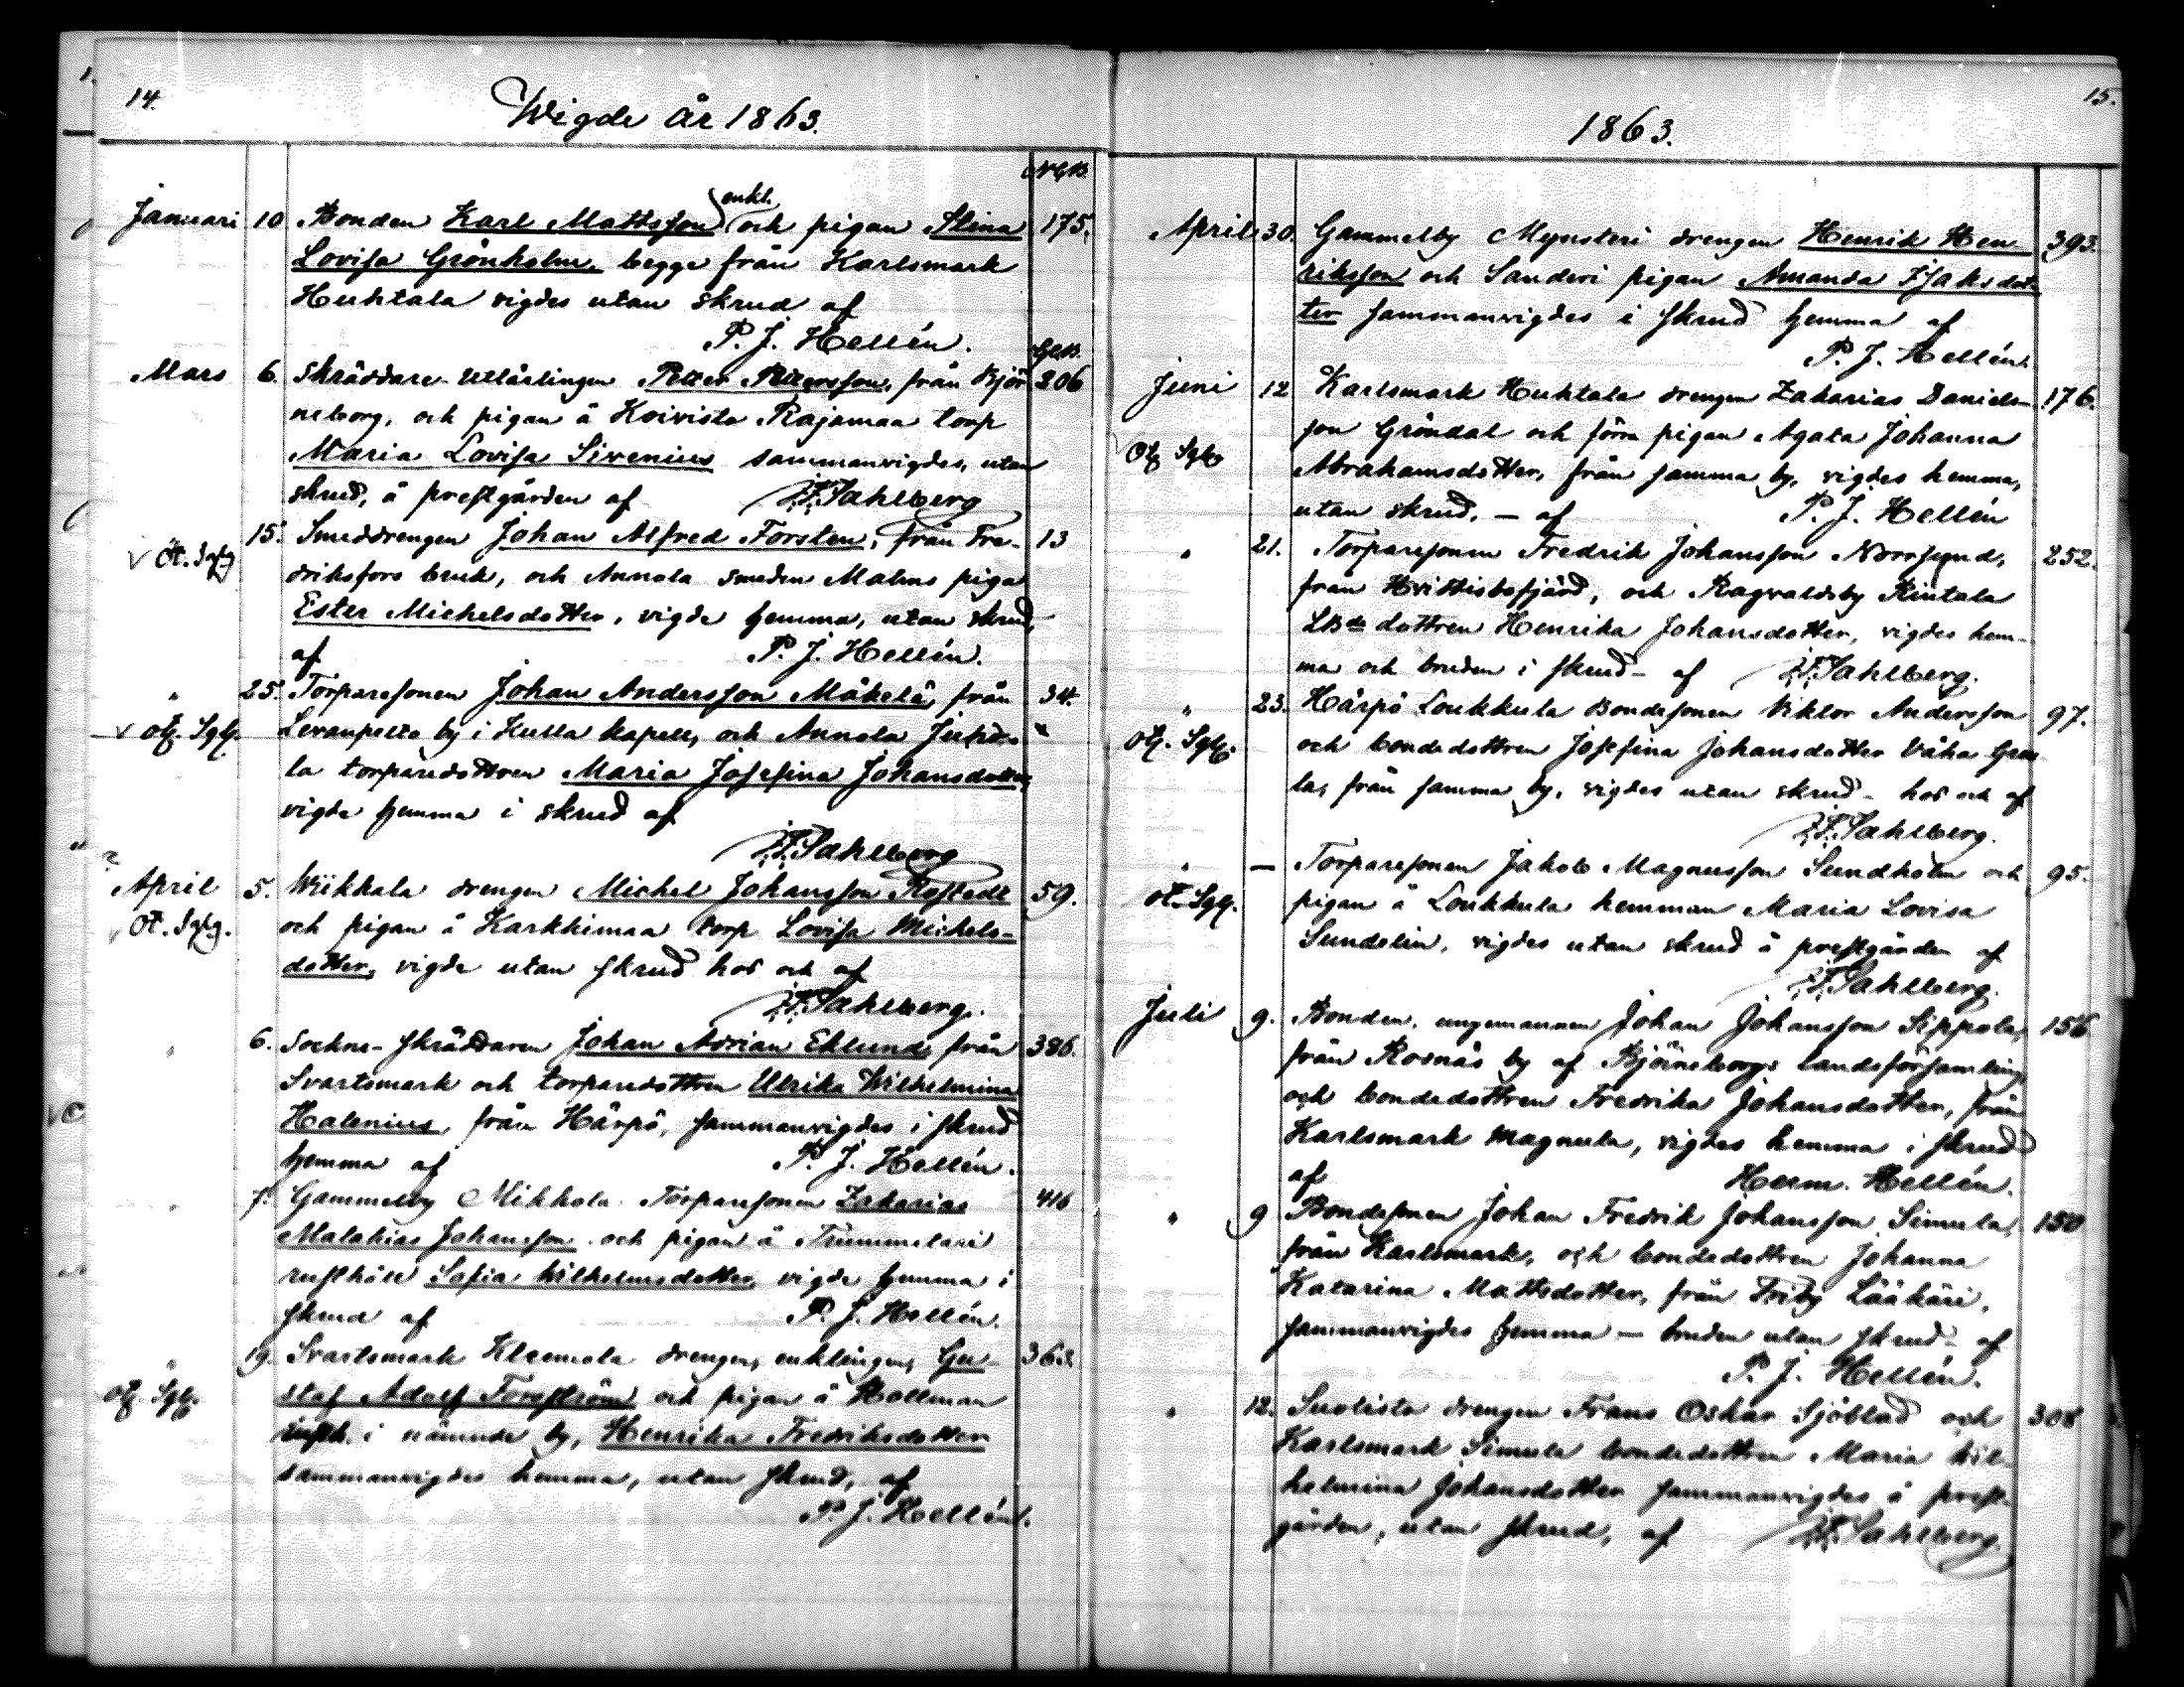 14.
Wigde år 1863.
Januari 10 Bonden Karl Mattsson enkl. och pigan Stina 175.
Lovisa Grönholm, begge från Karlsmark
Huhtala vigdes utan skrud af
P. J. Hellén.
Mars 6. Skräddare-utlärlingen Petter Pettersson, från Björ 206
neborg, och pigan å Koivisto Rajamaa torp
Maria Lovisa Sirenius sammanvigdes, utan
skrud, å prestgården af Sahlberg
15. Smeddrengen Johan Alfred Forsten, från Fre- 13
driksfors bruk, och Annola smeden Malms piga
Ester Michelsdotter, vigde hemma, utan skrud,
af P. J. Hellén.
" 25. Torparesonen Johan Andersson Mäkelä, från 34.
Levanpelto by i Kulla kapell, och Annola
la torparedottren Maria Josefina Johansdotter,
vigde hemma i skrud af
Sahlberg
April 5. Wiikkala drengen Michel Johansson 59.
och pigan å Karhimaa torp Lovisa Michels-
dotter, vigde utan skrud hos och af
Sahlberg.
" 6. Sockne-skräddaren Johan Adrian Eklund, från 386.
Svartsmark och torparedottren Ulrika Wilhelmina
Halenius, från Härpö, sammanvigdes i skrud
hemma af P. J. Hellén.
" 7. Gammelby Mikkola Torparesonen Zakarias 416
Malakias Johansson och pigan å Trummelari
rusthåll Sofia Wilhelmsdotter, vigde hemma i
skrud af P. J. Hellén.
" 19. Svartsmark Kleemola drengen, enklingen, Gu- 363.
staf Adolf Forsström och pigan å Hollman
rusth. i nämnde by, Henrika Fredriksdotter
sammanvigdes hemma, utan skrud, af
P. J. Hellén.
15.
1863.
April 30. Gammelby Mynsteri drengen Henrik Hen- 393.
riksson och Sanderi pigan Amanda Isaksdot-
ter sammanvigdes i skrud hemma af
P. J. Hellén.
Juni 12 Karlsmark Huhtala drengen Zakarias Daniels- 176.
son Gröndal och förra pigan Agata Johanna
Abrahamsdotter, från samma by, vigdes hemma,
utan skrud, - af P. J. Hellén
" 21. Torparesonen Fredrik Johansson Norrsund, 252.
från Hvittisbofjärd, och Ragvaldsby Rintala
dottren Henrika Johansdotter, vigdes hem-
ma och bruden i skrud - af Sahlberg.
" 23. Härpö Loukkula Bondesonen Viktor Andersson 97.
och bondedottren Josefina Johansdotter Vähä
la, från samma by, vigdes utan skrud - hos och af
Sahlberg.
" - Torparesonen Jakob Magnusson Sundholm och 95.
pigan å Loukkula hemman Maria Lovisa
Sundelin, vigdes utan skrud å prestgården af
Sahlberg.
Juli 9. Bonden, ungemannen Johan Johansson Sippola, 156
från Rosnäs by af Björneborgs landsförsamling
och bondedottren Fredrika Johansdotter, från
Karlsmark Magnula, vigdes hemma i skrud
af Herm. Hellén.
" 9 Bondesonen Johan Fredrik Johansson Simula, 150
från Karlsmark, och bondedottren Johanna
Katarina Mattsdotter, från Friby Lääkäri,
sammanvigdes hemma - bruden utan skrud - af
P. J. Hellén.
" 12. Suolisto drengen Frans Oskar Sjöblad och 308
Karlsmark Simula bondedottren Maria Wil-
helmina Johansdotter sammanvigdes å prest-
gården, utan skrud, af Sahlberg.